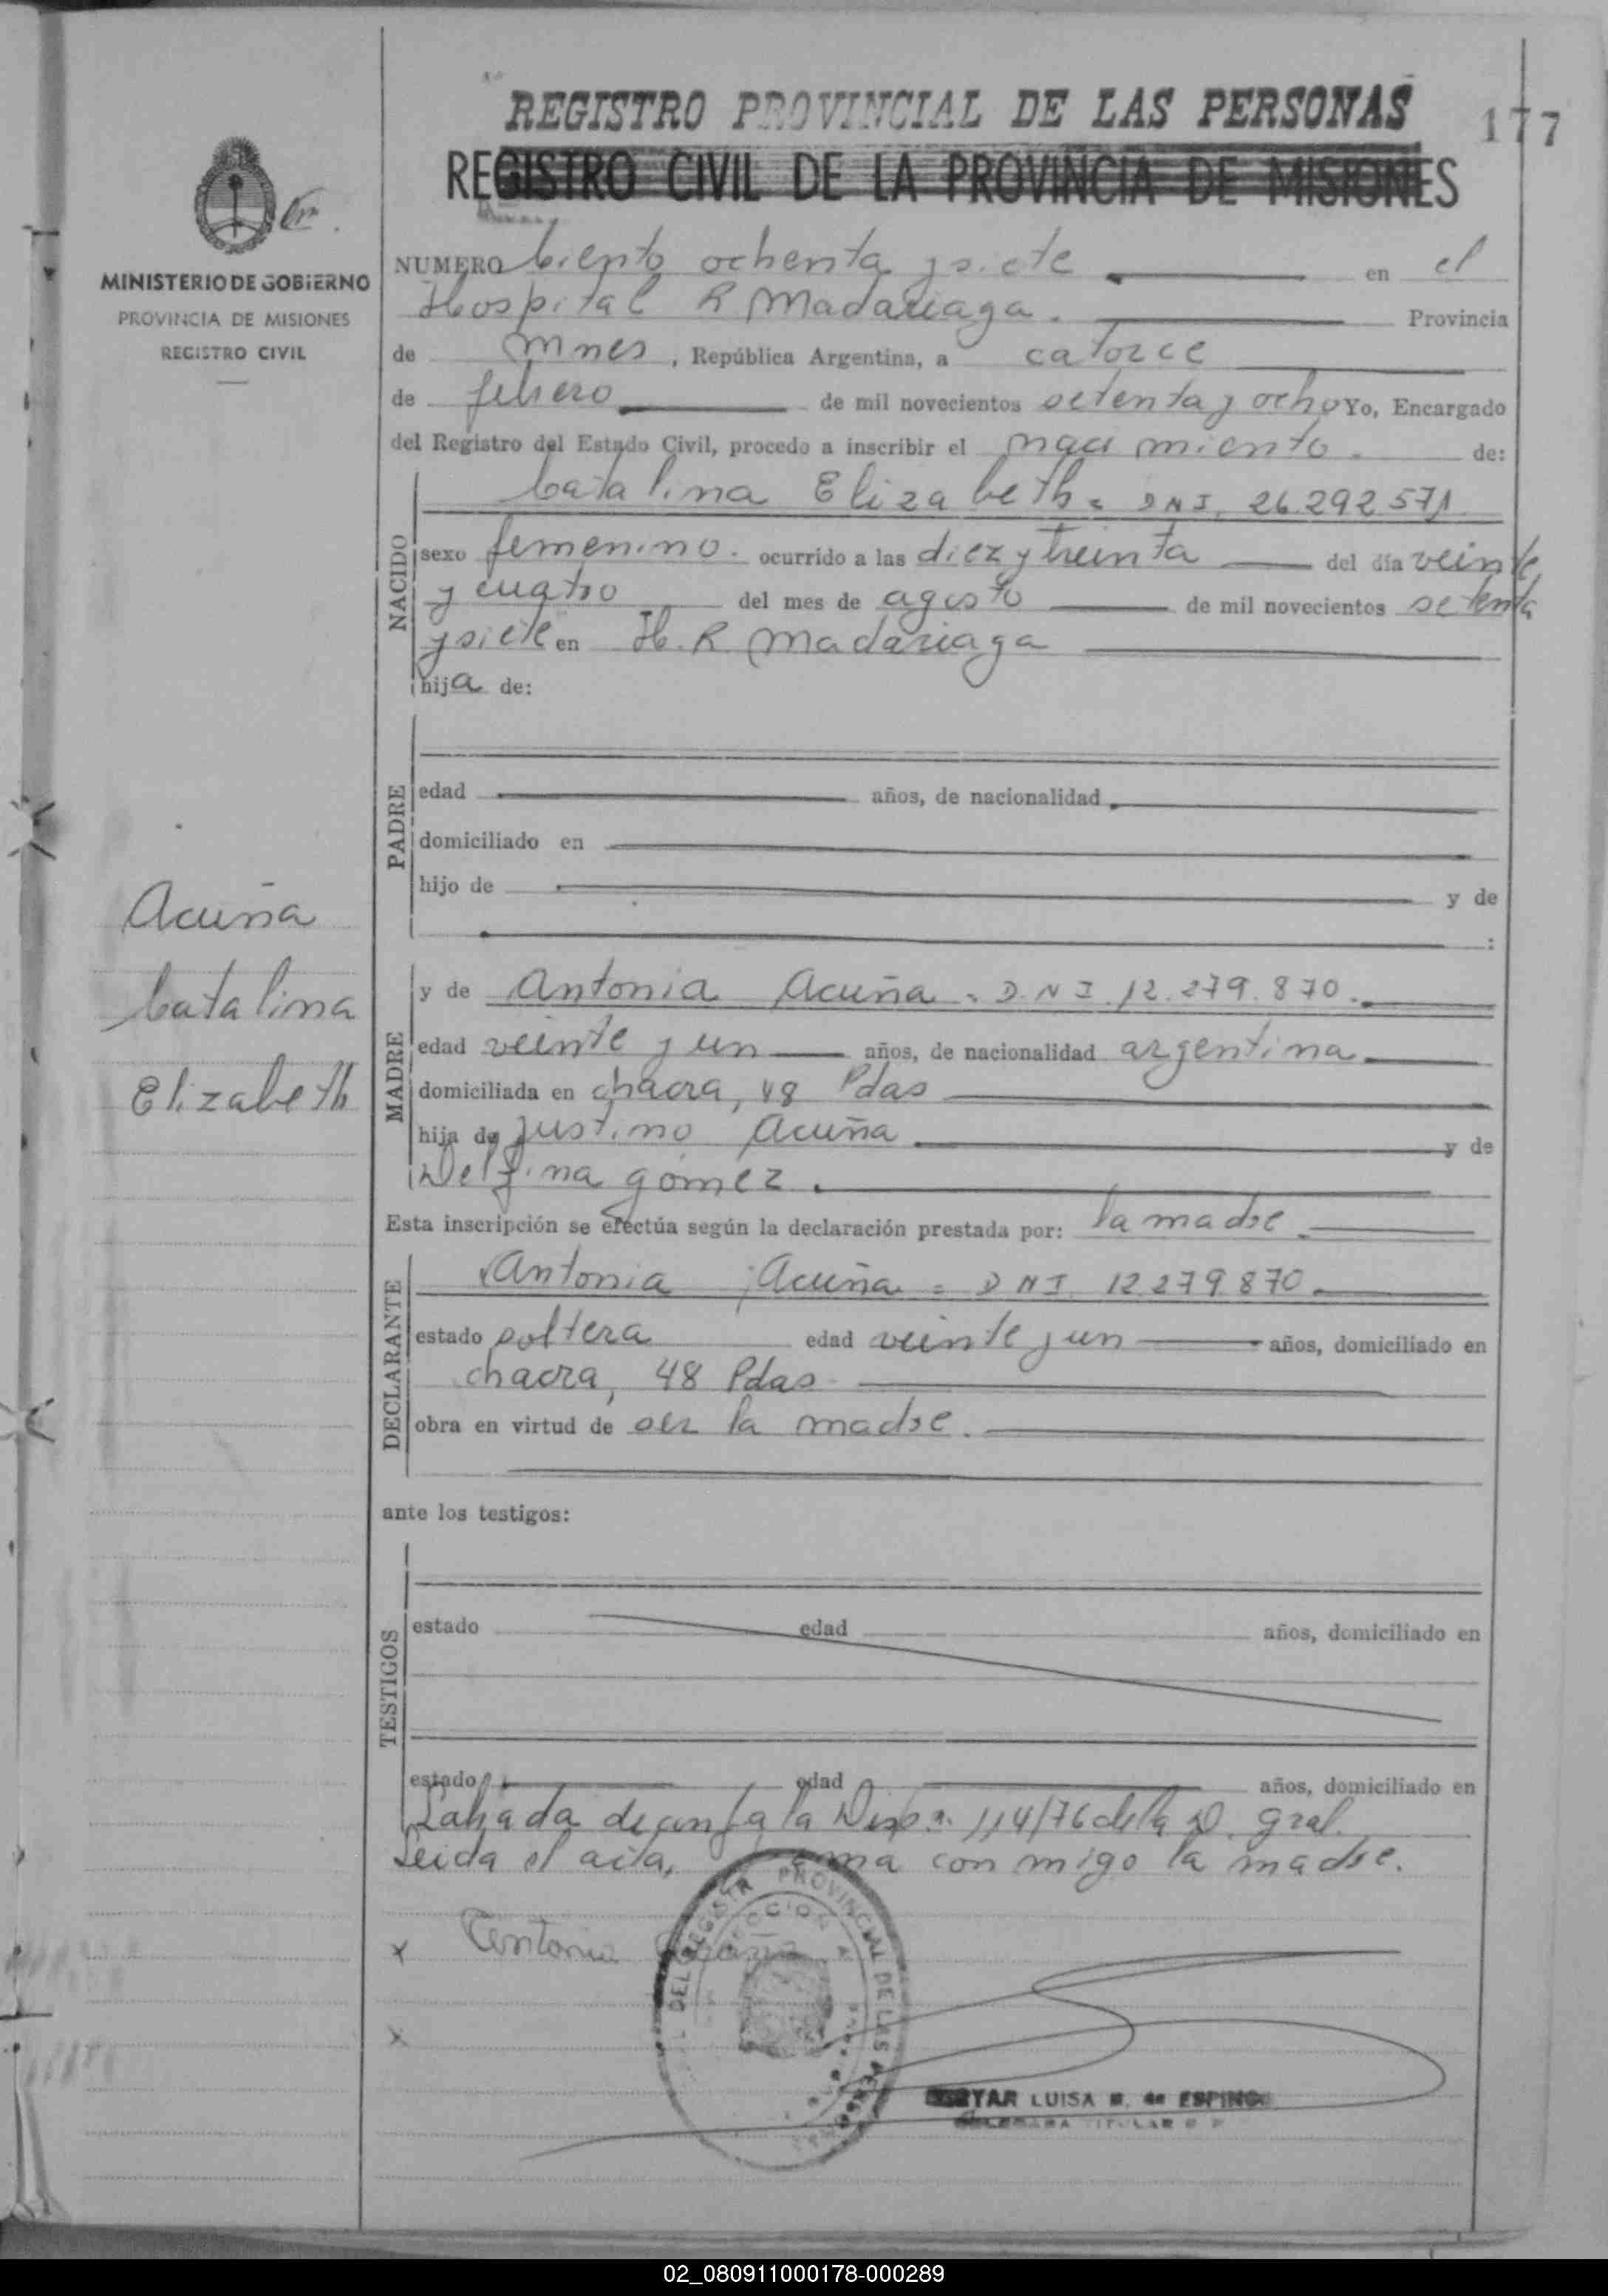 REGISTRO PROVINCIAL DE LAS PERSONAS
177
REGISTRO CIVIL DE LA PROVINCIA DE MISIONES
MINISTERIO DE GOBIERNO
PROVINCIA DE MISIONES
REGISTRO CIVIL
NUMERO Ciento ochenta y siete en el
Hospital R Madariaga. Provincia
de Mnes, República Argentina, a catorce
de febrero de mil novecientos setenta y ocho Yo, Encargado
del Registro del Estado Civil, procedo a inscribir el naci miento. de:
NACIDO
Catalina Elizabeth = DNI. 26.292.571
sexo femenino. ocurrido a las diez y treinta del día veinte
y cuatro del mes de agosto de mil novecientos setenta
y siete en H. R Madariaga
hija de:
PADRE
edad años, de nacionalidad
domiciliado en
hijo de y de
:
Acuña
Catalina
Elizabeth
MADRE
y de Antonia Acuña = D.N.I. 12.279.870.
edad veinte y un años, de nacionalidad argentina
domiciliada en chacra, 48 Pdas
hija de Justino Acuña y de
Delfina gómez.
Esta inscripción se efectúa según la declaración prestada por: la madre.
DECLARANTE
Antonia Acuña = DNI 12.279.870
estado soltera edad veinte y un años, domiciliado en
chacra, 48 Pdas
obra en virtud de ser la madre.
ante los testigos:
TESTIGOS
estado edad años, domiciliado en
estado edad años, domiciliado en
Labrada de conf a la Disp n. 114/76 de la D. gral.
Leida el acta, firma con migo la madre.
x Antonia Acuña
x
DEL REGISTR PROVINCIAL DE LAS PERSONAS
LUISA de ESPINO
TITULAR
02_080911000178-000289